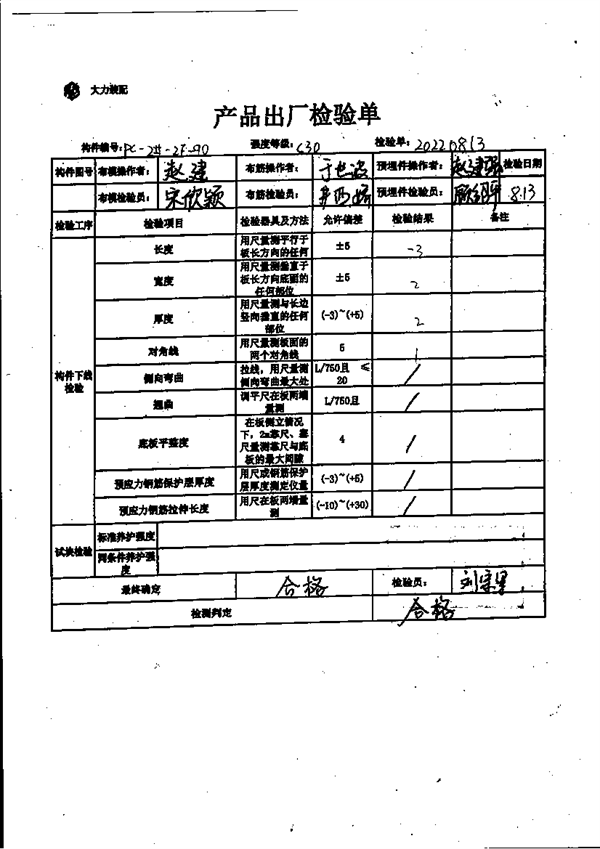 大力装配
产品出厂检验单
构件编号: PC-2#-2F-90 强度等级: C30 检验单: 20220813
构件图号 布模操作者: 赵建 布筋操作者: 预埋件操作者: 赵建强 检验日期
布模检验员: 宋欣颖 布筋检验员: 预埋件检验员: 8.13
检验工序 检验项目 检验器具及方法 允许偏差 检验结果 备注
构件下线检验
长度 用尺量测平行于板长方向的任何 ±5 -3
宽度 用尺量测垂直于板长方向底面的任何部位 ±5 2
厚度 用尺量测与长边竖向垂直的任何部位 (-3)~(+5) 2
对角线 用尺量测板面的两个对角线 5 1
侧向弯曲 拉线,用尺量测侧向弯曲最大处 L/750且 ≤20 /
翘曲 调平尺在板两端量测 L/750且 /
底板平整度 在板侧立情况下,2m靠尺、塞尺量测靠尺与底板的最大间隙 4 /
预应力钢筋保护层厚度 用尺或钢筋保护层厚度测定仪量 (-3)~(+5) /
预应力钢筋拉伸长度 用尺在板两端量测 (-10)~(+30) /
试块检验 标准养护强度
同条件养护强度
最终确定 合格 检验员:
检测判定 合格